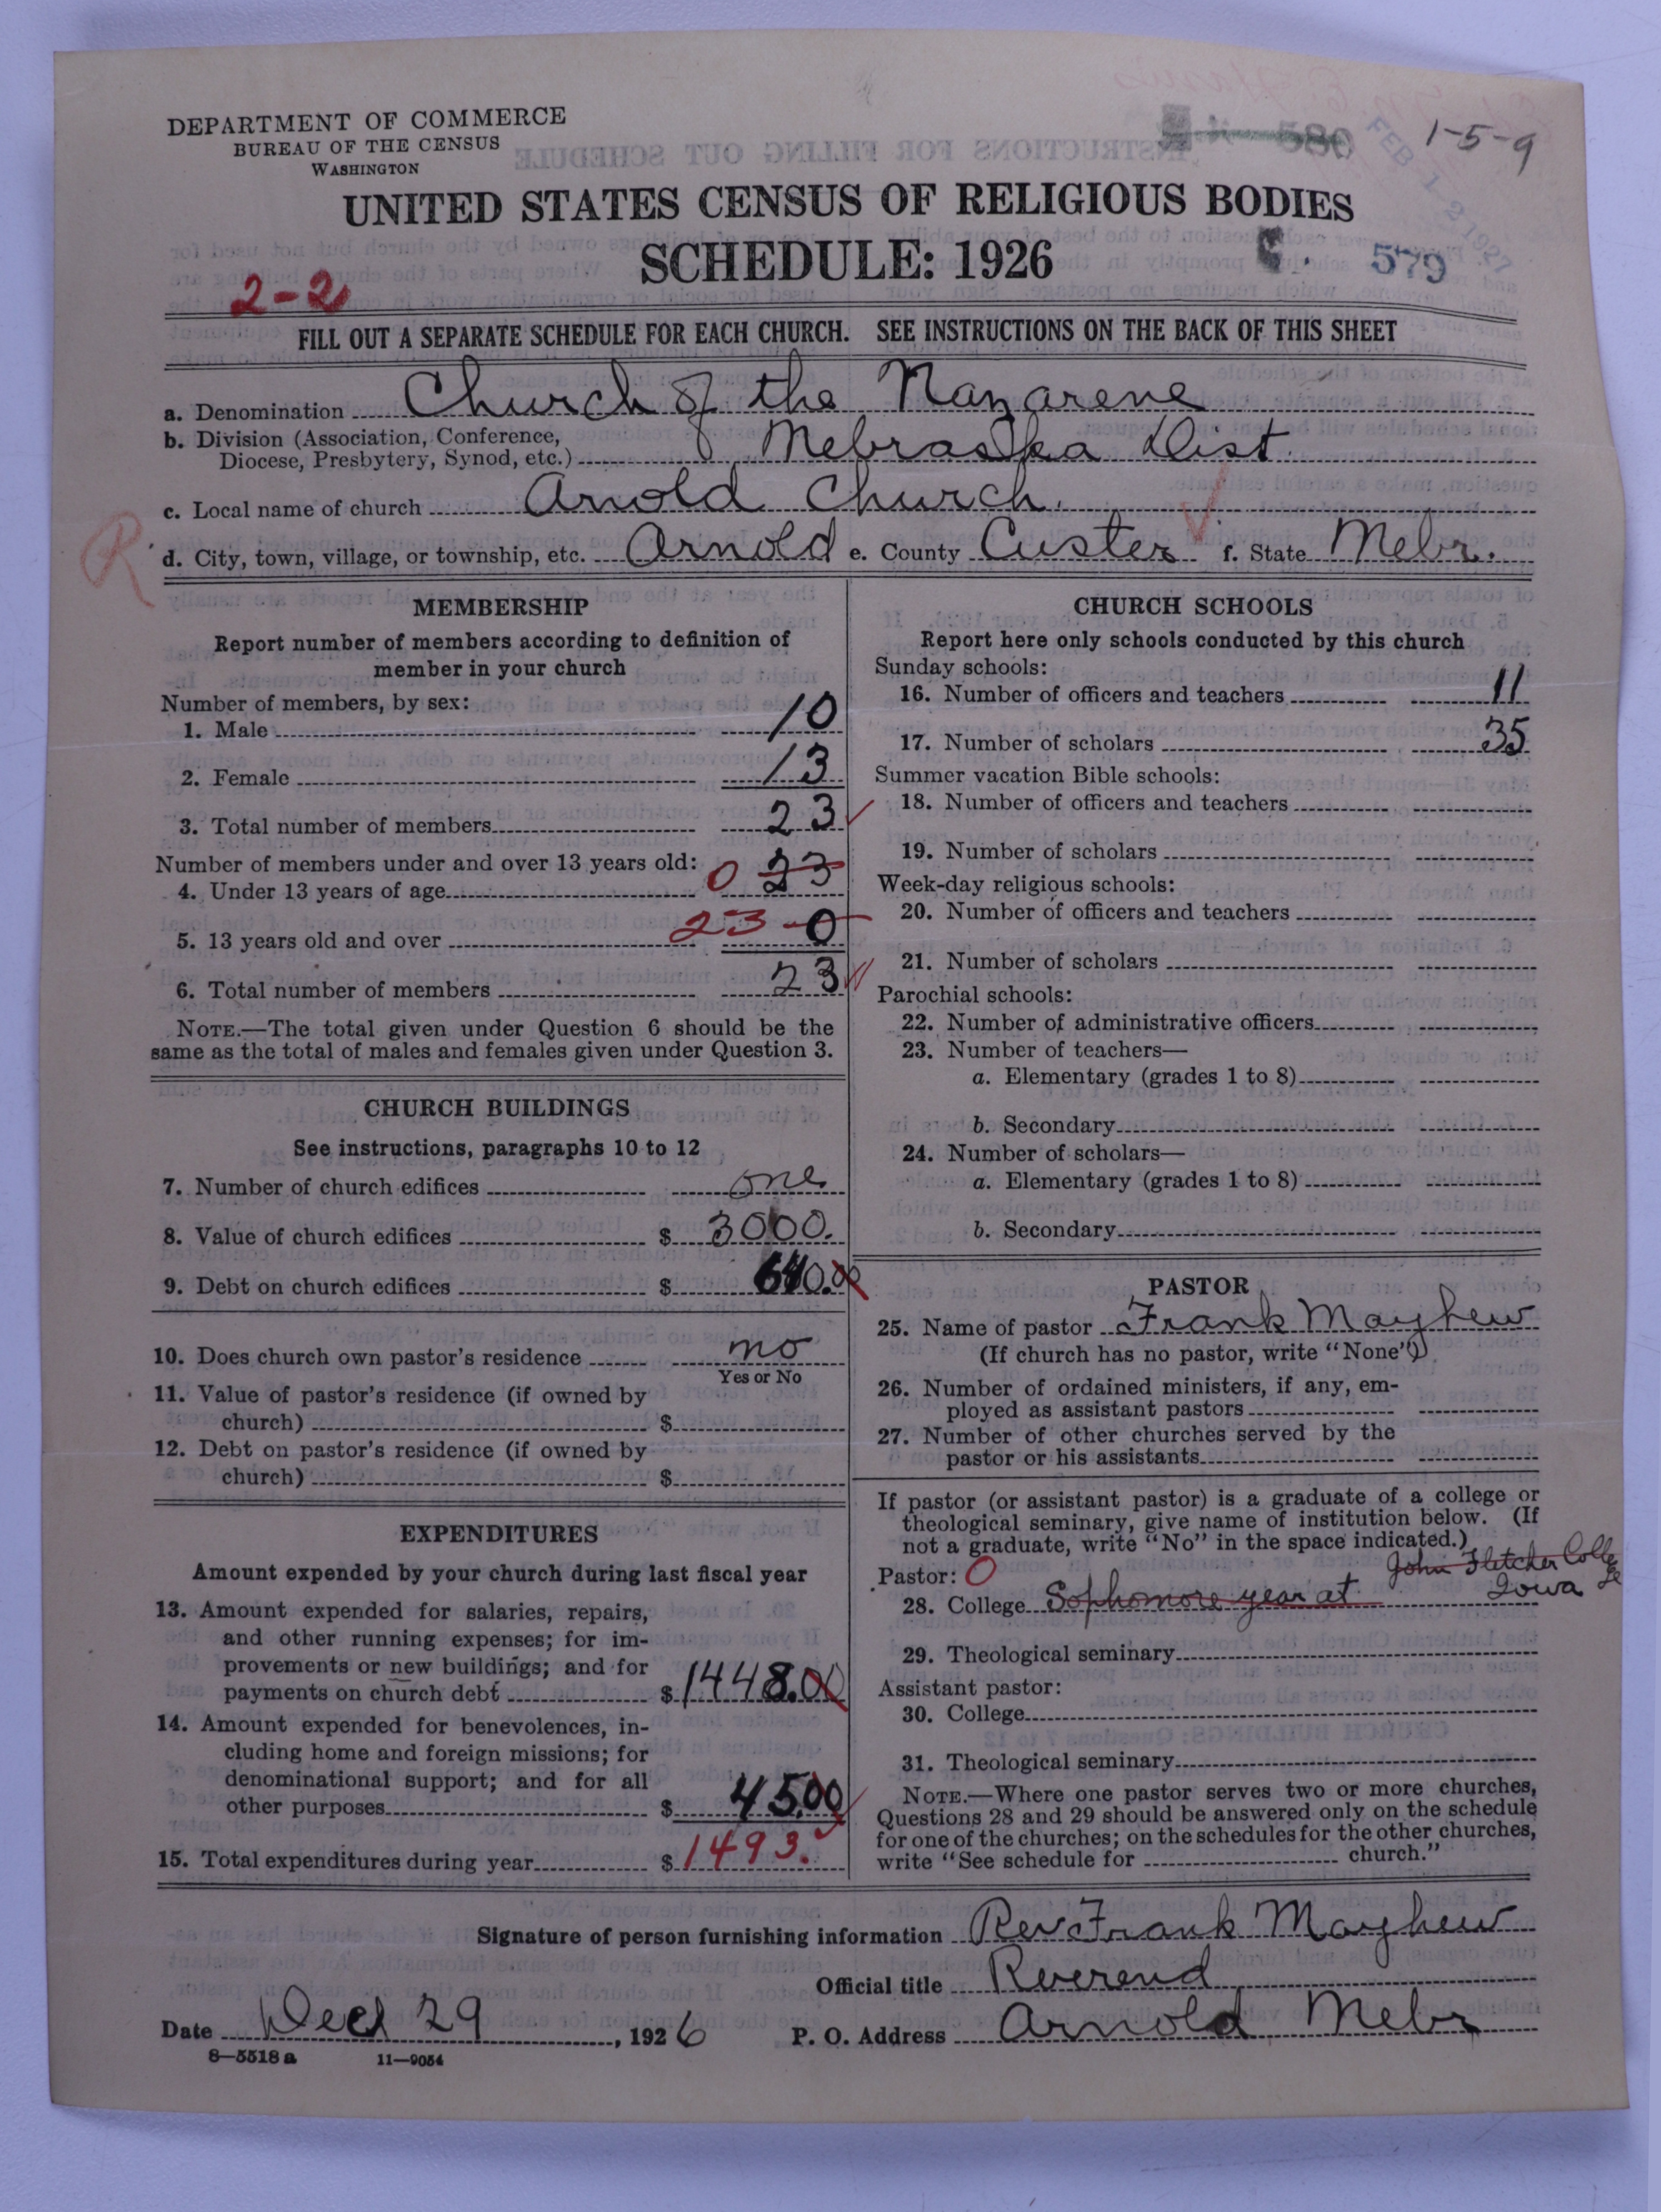 DEPARTMENT OF COMMERCE
BUREAU OF THE CENSUS
WASHINGTON
580
1-5-9
FEB 12 1927
UNITED STATES CENSUS OF RELIGIOUS BODIES
SCHEDULE: 1926
579
2-2
FILL OUT A SEPARATE SCHEDULE FOR EACH CHURCH. SEE INSTRUCTIONS ON THE BACK OF THIS SHEET
a. Denomination Church of the Nazarene
b. Division (Association, Conference,
Diocese, Presbytery, Synod, etc.) Nebraska Dist.
c. Local name of church Arnold Church.
R
d. City, town, village, or township, etc. Arnold e. County Custer f. State Nebr.
MEMBERSHIP
Report number of members according to definition of
member in your church
Number of members, by sex:
1. Male 10
2. Female 13
3. Total number of members 23
Number of members under and over 13 years old:
4. Under 13 years of age 0 23
5. 13 years old and over 23 0
6. Total number of members 23
NOTE.—The total given under Question 6 should be the
same as the total of males and females given under Question 3.
CHURCH BUILDINGS
See instructions, paragraphs 10 to 12
7. Number of church edifices one
8. Value of church edifices $ 3000.
9. Debt on church edifices $ 640.00
10. Does church own pastor's residence no
Yes or No
11. Value of pastor's residence (if owned by
church) $
12. Debt on pastor's residence (if owned by
church) $
EXPENDITURES
Amount expended by your church during last fiscal year
13. Amount expended for salaries, repairs,
and other running expenses; for im-
provements or new buildings; and for
payments on church debt $ 1448.00
14. Amount expended for benevolences, in-
cluding home and foreign missions; for
denominational support; and for all
other purposes $ 45.00
15. Total expenditures during year $ 1493.
CHURCH SCHOOLS
Report here only schools conducted by this church
Sunday schools:
16. Number of officers and teachers 11
17. Number of scholars 35
Summer vacation Bible schools:
18. Number of officers and teachers
19. Number of scholars
Week-day religious schools:
20. Number of officers and teachers
21. Number of scholars
Parochial schools:
22. Number of administrative officers
23. Number of teachers—
a. Elementary (grades 1 to 8)
b. Secondary
24. Number of scholars—
a. Elementary (grades 1 to 8)
b. Secondary
PASTOR
25. Name of pastor Frank Mayhew
(If church has no pastor, write "None")
26. Number of ordained ministers, if any, em-
ployed as assistant pastors
27. Number of other churches served by the
pastor or his assistants
If pastor (or assistant pastor) is a graduate of a college or
theological seminary, give name of institution below. (If
not a graduate, write "No" in the space indicated.)
Pastor: O John Fletcher College
28. College Sophomore year at Iowa
29. Theological seminary
Assistant pastor:
30. College
31. Theological seminary
NOTE.—Where one pastor serves two or more churches,
Questions 28 and 29 should be answered only on the schedule
for one of the churches; on the schedules for the other churches,
write "See schedule for church."
Signature of person furnishing information Rev Frank Mayhew
Official title Reverend
Date Dec 29, 1926 P. O. Address Arnold Nebr
8—5518 a 11—9054